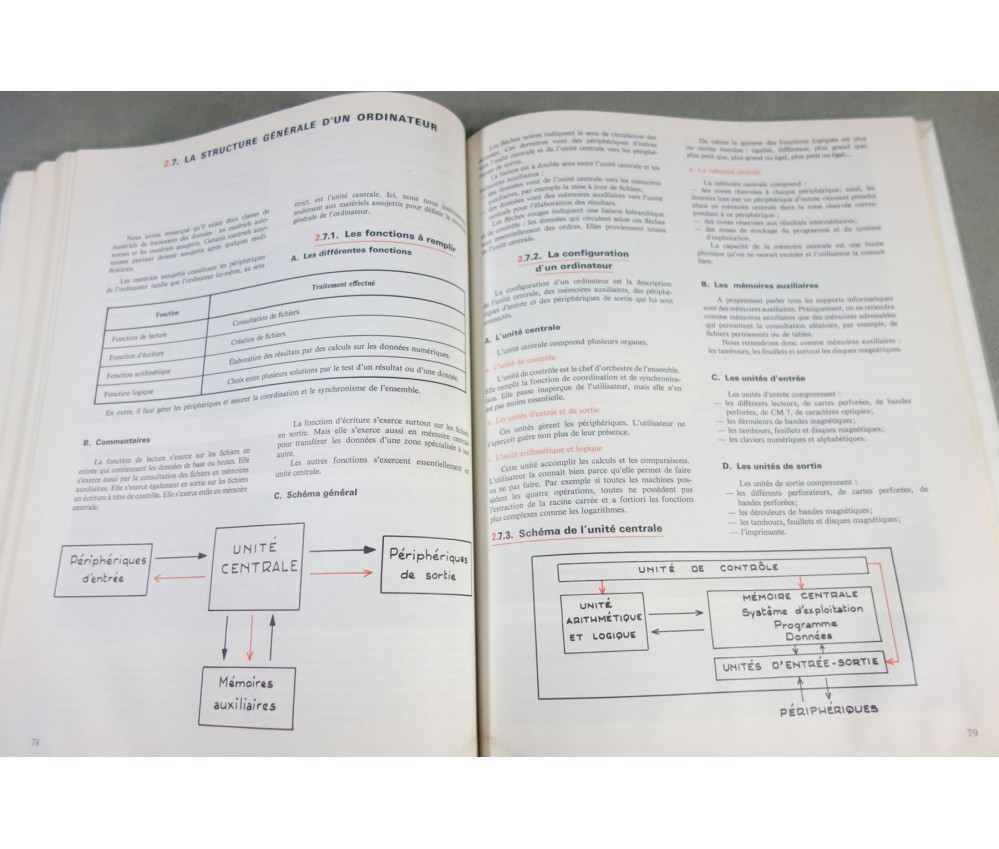 2.7. LA STRUCTURE GÉNÉRALE D'UN ORDINATEUR
Nous avons remarqué qu'il existe deux classes de
matériels de traitement des données : les matériels auto-
nomes et les matériels assujettis. Certains matériels auto-
nomes peuvent devenir assujettis après quelques modi-
fications.
Les matériels assujettis constituent les périphériques
de l'ordinateur tandis que l'ordinateur lui-même, au sens
strict, est l'unité centrale. Ici, nous nous
seulement aux matériels assujettis pour définir la
générale de l'ordinateur.
2.7.1. Les fonctions à remplir
A. Les différentes fonctions
Fonction
Traitement effectué
Fonction de lecture
Consultation de fichiers.
Fonction d'écriture
Création de fichiers.
Fonction arithmétique
Élaboration des résultats par des calculs sur les données numériques.
Fonction logique
Choix entre plusieurs solutions par le test d'un résultat ou d'une donnée.
En outre, il faut gérer les périphériques et assurer la coordination et le synchronisme de l'ensemble.
B. Commentaires
La fonction de lecture s'exerce sur les fichiers en
entrée qui contiennent les données de base ou brutes. Elle
s'exerce aussi par la consultation des fichiers en mémoires
auxiliaires. Elle s'exerce également en sortie sur les fichiers
en écriture à titre de contrôle. Elle s'exerce enfin en mémoire
centrale.
La fonction d'écriture s'exerce surtout sur les fichiers
en sortie. Mais elle s'exerce aussi en mémoire centrale
pour transférer les données d'une zone spécialisée à une
autre.
Les autres fonctions s'exercent essentiellement en
unité centrale.
C. Schéma général
Périphériques
d'entrée
UNITÉ
CENTRALE
Périphériques
de sortie
Mémoires
auxiliaires
78
Les flèches noires indiquent le sens de circulation des
données. Ces dernières vont des périphériques d'entrée
vers l'unité centrale et de l'unité centrale vers les périphé-
riques de sortie.
La liaison est à double sens entre l'unité centrale et les
mémoires auxiliaires :
— des données vont de l'unité centrale vers les mémoires
auxiliaires, par exemple la mise à jour de fichiers;
— des données vont des mémoires auxiliaires vers l'unité
centrale pour l'élaboration des résultats.
Les flèches rouges indiquent une liaison hiérarchique
de contrôle : les données qui circulent selon ces flèches
sont essentiellement des ordres. Elles proviennent toutes
de l'unité centrale.
2.7.2. La configuration
d'un ordinateur
La configuration d'un ordinateur est la description
de l'unité centrale, des mémoires auxiliaires, des périphé-
riques d'entrée et des périphériques de sortie qui lui sont
connectés.
A. L'unité centrale
L'unité centrale comprend plusieurs organes.
a. L'unité de contrôle
L'unité de contrôle est le chef d'orchestre de l'ensemble.
Elle remplit la fonction de coordination et de synchronisa-
tion. Elle passe inaperçue de l'utilisateur, mais elle n'en
est pas moins essentielle.
b. Les unités d'entrée et de sortie
Ces unités gèrent les périphériques. L'utilisateur ne
s'aperçoit guère non plus de leur présence.
c. L'unité arithmétique et logique
Cette unité accomplit les calculs et les comparaisons.
L'utilisateur la connaît bien parce qu'elle permet de faire
ou ne pas faire. Par exemple si toutes les machines pos-
sèdent les quatre opérations, toutes ne possèdent pas
l'extraction de la racine carrée et a fortiori les fonctions
plus complexes comme les logarithmes.
2.7.3. Schéma de l'unité centrale
De même la gamme des fonctions logiques est plus
ou moins étendue : égalité, différence, plus grand que,
plus petit que, plus grand ou égal, plus petit ou égal...
d. La mémoire centrale
La mémoire centrale comprend :
— des zones réservées à chaque périphérique; ainsi, les
données lues par un périphérique d'entrée viennent prendre
place en mémoire centrale dans la zone réservée corres-
pondant à ce périphérique :
— des zones réservées aux résultats intermédiaires;
— des zones de stockage du programme et du système
d'exploitation.
La capacité de la mémoire centrale est une limite
physique qu'on ne saurait excéder et l'utilisateur la connaît
bien.
B. Les mémoires auxiliaires
A proprement parler tous les supports informatiques
sont des mémoires auxiliaires. Pratiquement, on ne retiendra
comme mémoires auxiliaires que des mémoires adressables
qui permettent la consultation aléatoire, par exemple, de
fichiers permanents ou de tables.
Nous retiendrons donc comme mémoires auxiliaires :
les tambours, les feuillets et surtout les disques magnétiques.
C. Les unités d'entrée
Les unités d'entrée comprennent :
— les différents lecteurs, de cartes perforées, de bandes
perforées, de CM 7, de caractères optiques;
— les dérouleurs de bandes magnétiques;
— les tambours, feuillets et disques magnétiques;
— les claviers numériques et alphabétiques.
D. Les unités de sortie
Les unités de sortie comprennent :
— les différents perforateurs, de cartes perforées, de
bandes perforées;
— les dérouleurs de bandes magnétiques;
— les tambours, feuillets et disques magnétiques;
— l'imprimante.
UNITÉ DE CONTRÔLE
UNITÉ
ARITHMÉTIQUE
ET LOGIQUE
MÉMOIRE CENTRALE
Système d'exploitation
Programme
Données
UNITÉS D'ENTRÉE-SORTIE
PÉRIPHÉRIQUES
79